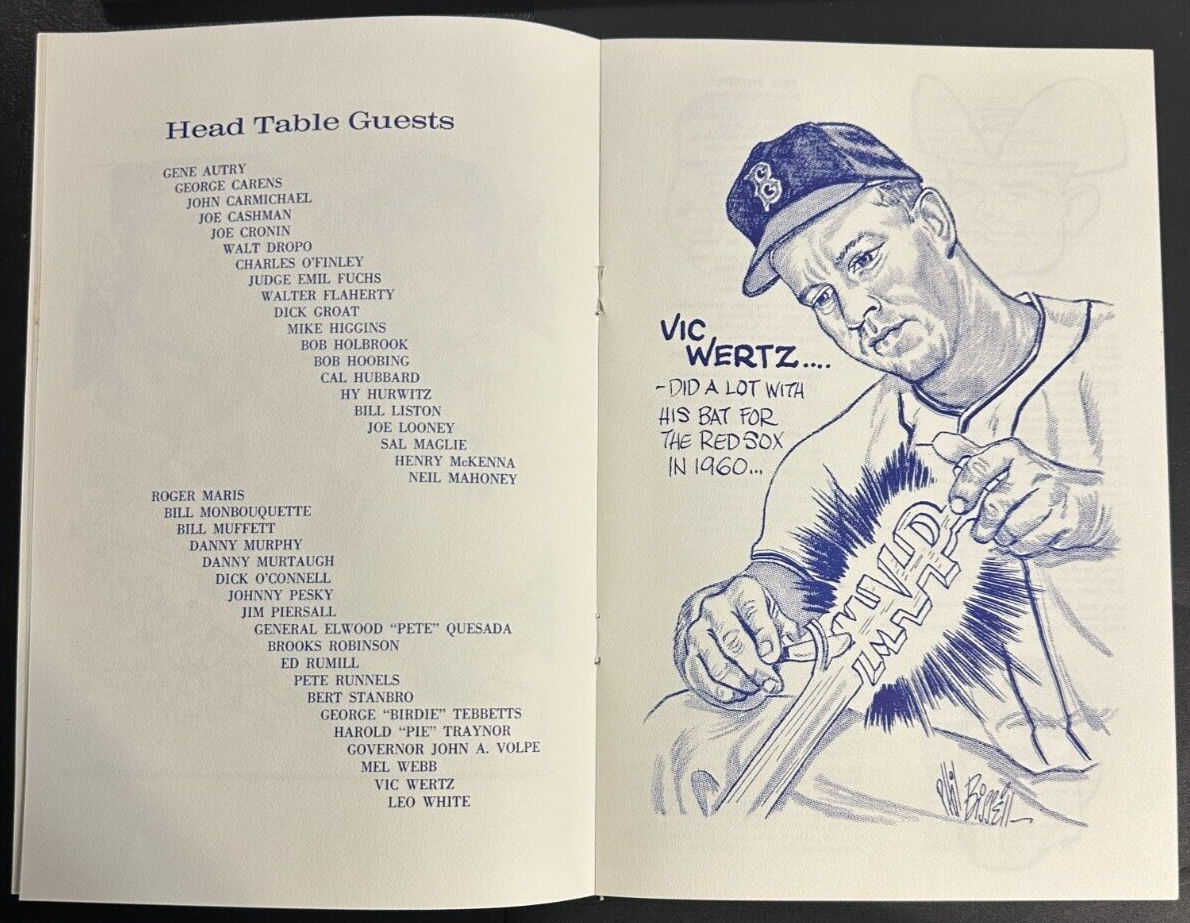 Head Table Guests
GENE AUTRY
GEORGE CARENS
JOHN CARMICHAEL
JOE CASHMAN
JOE CRONIN
WALT DROPO
CHARLES O'FINLEY
JUDGE EMIL FUCHS
WALTER FLAHERTY
DICK GROAT
MIKE HIGGINS
BOB HOLBROOK
BOB HOOBING
CAL HUBBARD
HY HURWITZ
BILL LISTON
JOE LOONEY
SAL MAGLIE
HENRY McKENNA
NEIL MAHONEY
ROGER MARIS
BILL MONBOUQUETTE
BILL MUFFETT
DANNY MURPHY
DANNY MURTAUGH
DICK O'CONNELL
JOHNNY PESKY
JIM PIERSALL
GENERAL ELWOOD “PETE” QUESADA
BROOKS ROBINSON
ED RUMILL
PETE RUNNELS
BERT STANBRO
GEORGE “BIRDIE” TEBBETTS
HAROLD “PIE” TRAYNOR
GOVERNOR JOHN A. VOLPE
MEL WEBB
VIC WERTZ
LEO WHITE
B
VIC
WERTZ....
-DID A LOT WITH
HIS BAT FOR
THE RED SOX
IN 1960...
Phil Bissell